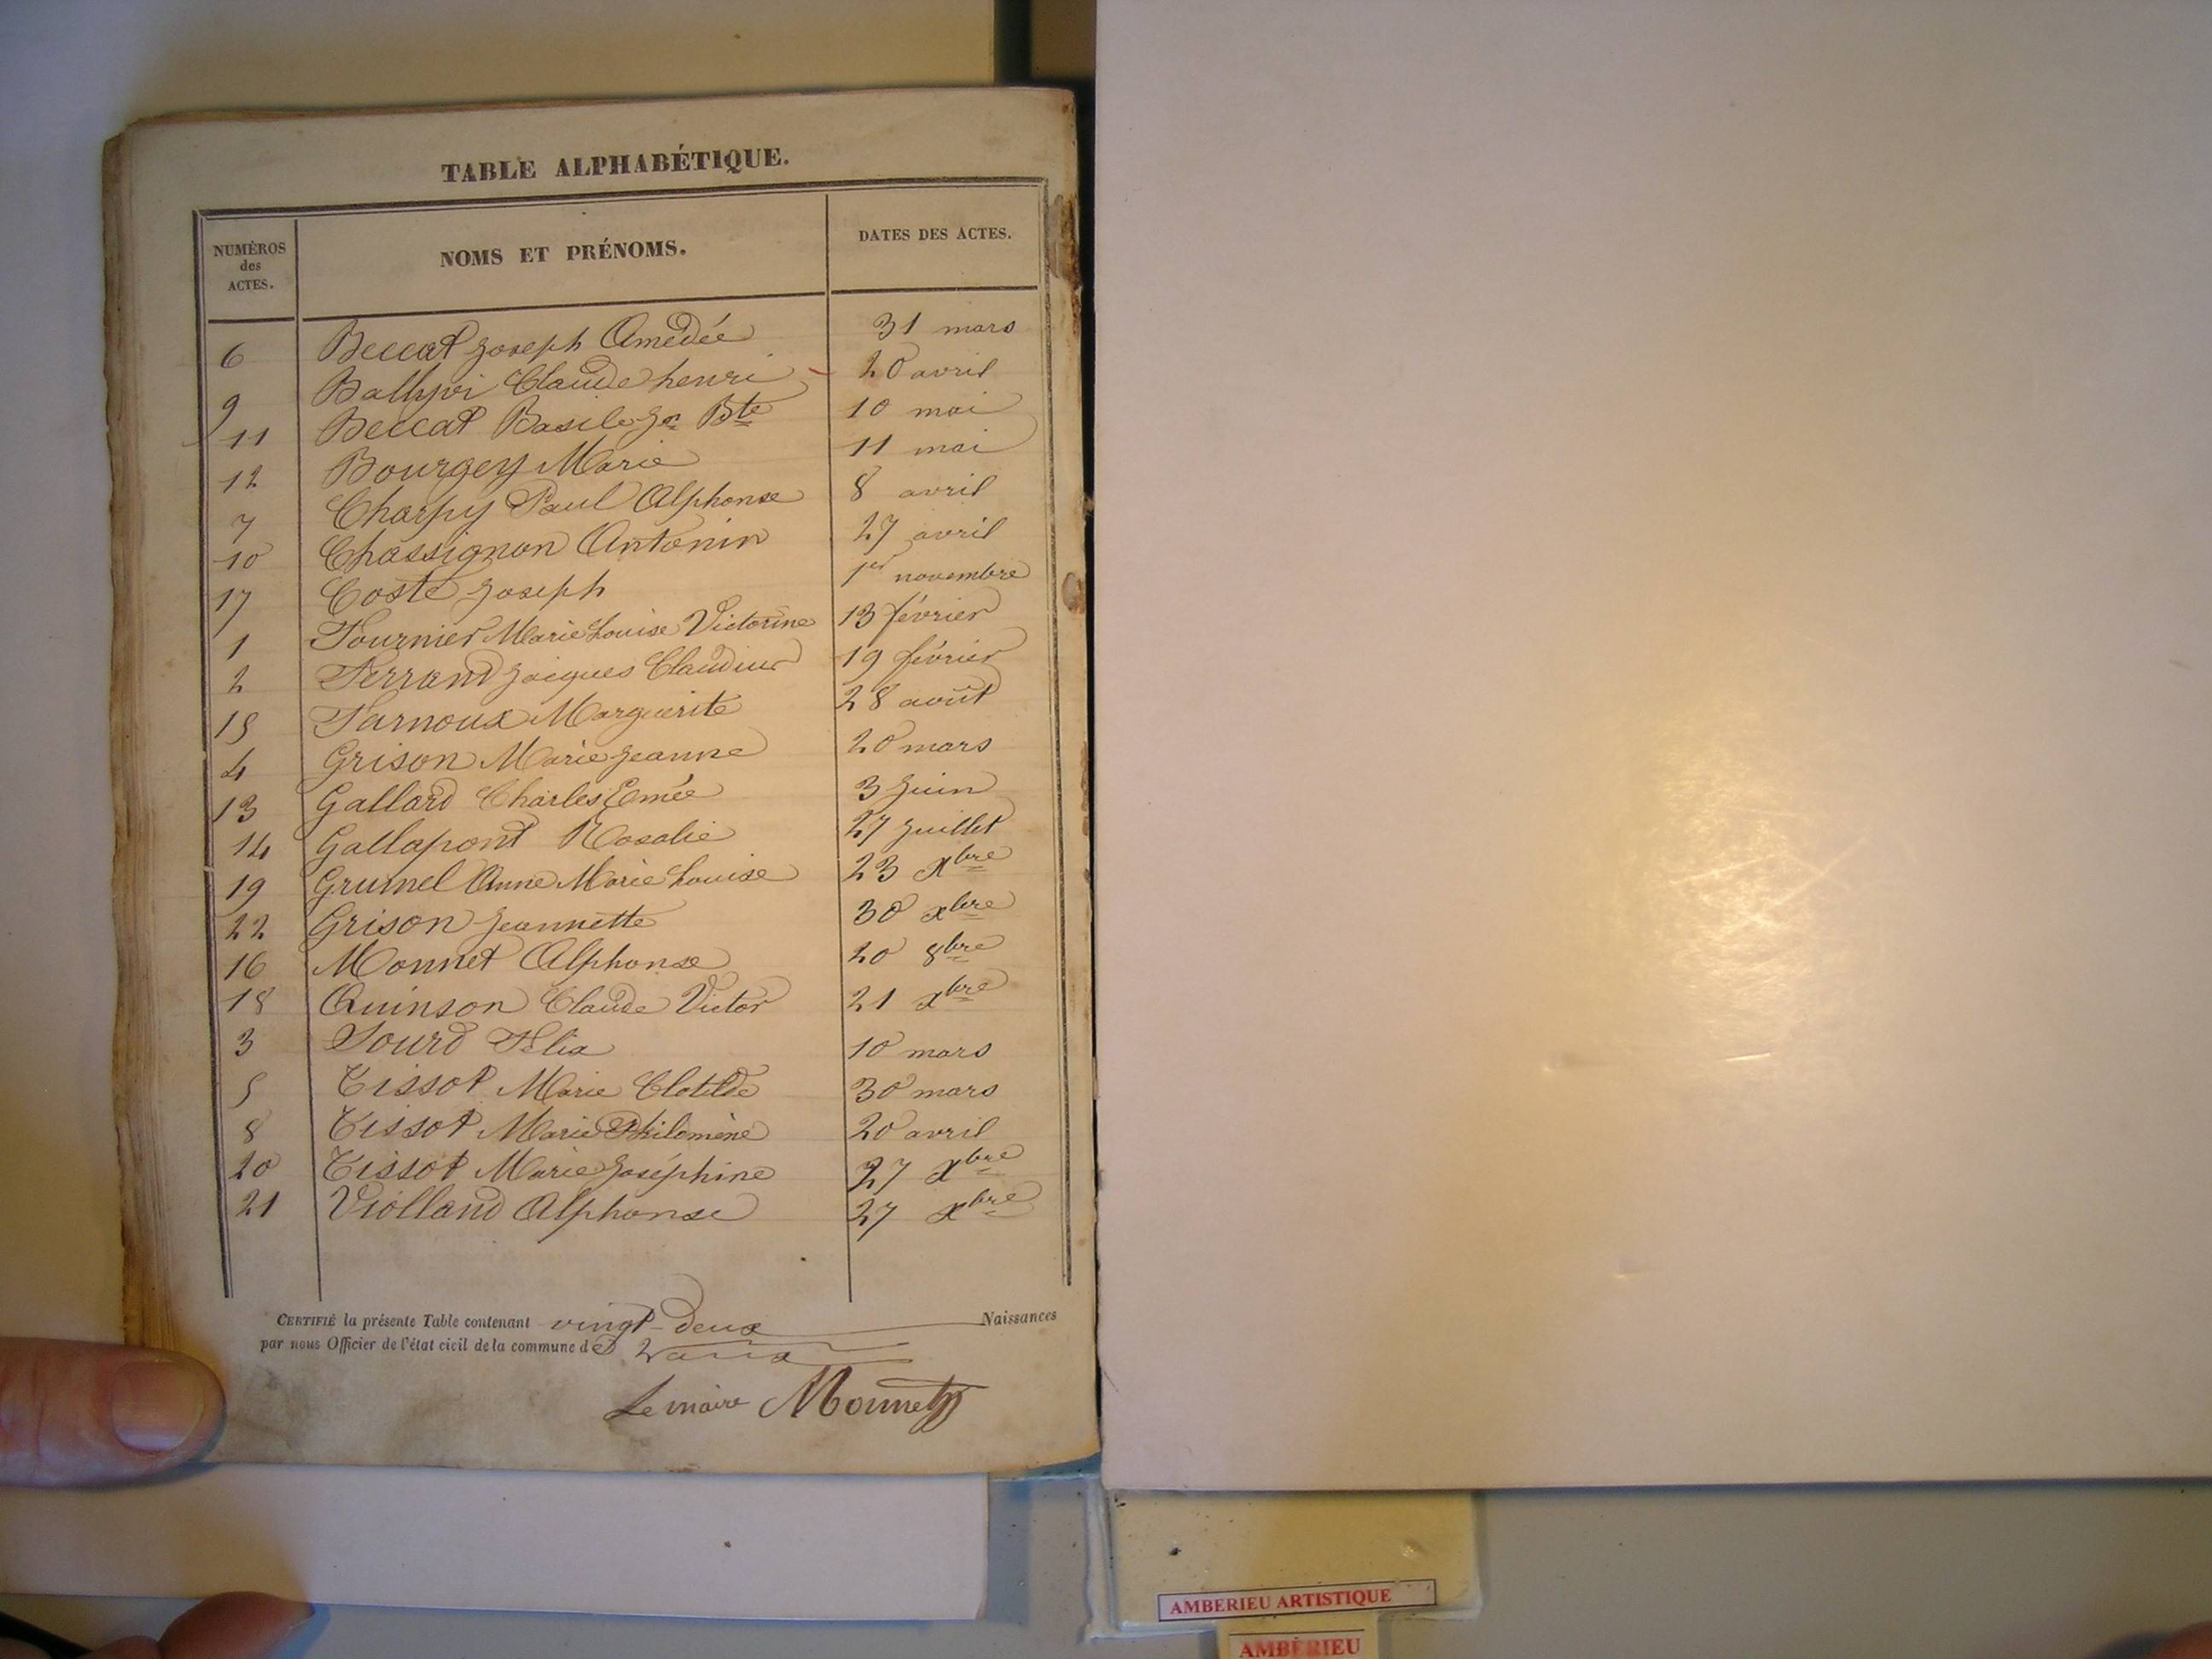 TABLE ALPHABÉTIQUE.
NUMÉROS des ACTES. NOMS ET PRÉNOMS. DATES DES ACTES.
6 Beccat Joseph Amédée 31 mars
9 Claude henri 20 avril
11 Beccat Basile Jn Bte 10 mai
12 Bourgey Marie 11 mai
7 Charpy Paul Alphonse 8 avril
10 Chassignon Antonin 27 avril
17 Coste Joseph 1er novembre
1 Fournier Marie Louise Victorine 13 février
2 Ferrand Jacques Claudius 19 février
15 Farnoux Marguerite 28 août
4 Grison Marie Jeanne 20 mars
13 Gallard Charles Edmée 3 Juin
14 Gallapont Rosalie 27 Juillet
19 Grumel Anne Marie Louise 23 Xbre
22 Grison Jeannette 30 xbre
16 Monnet Alphonse 20 8bre
18 Quinson Claude Victor 21 xbre
3 Sourd Félix 10 mars
5 Tissot Marie Clotilde 30 mars
8 Tissot Marie Philomène 20 avril
20 Tissot Marie Joséphine 27 Xbre
21 Violland Alphonse 27 Xbre
CERTIFIÉ la présente Table contenant vingt-deux Naissances
par nous Officier de l'état civil de la commune de Vaux
Le maire Monnet
AMBERIEU ARTISTIQUE
AMBÉRIEU